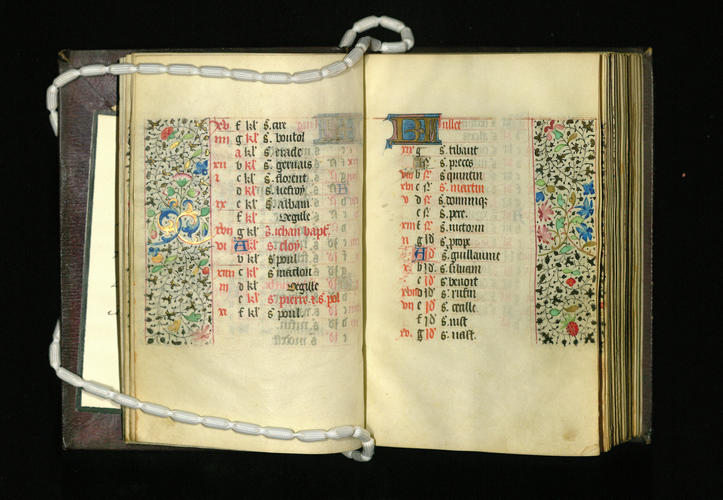 xv f kl' s. cire
iiii g kl' s. boutol
a kl' s. erade
xii b kl' s. geruais
i c kl' s. florent
d kl' s. liefroy
ix e kl' s. albain
f kl' vegille
xvii g kl' s. iehan bapt'.
vi A kl' s. eloy.
b kl' s. poul
xiiii c kl' s.
iii d kl' vegille
e kl' s. pierre. s. pol
xi f kl' s. poul.
Iuillet
xix g s. tibaut
s. proces
viii b s. quintin
xvi c s. martin
v d s. dominiq;
e s. pere.
xiii f s. uictorin
ii g id' s. prope
A id' s. guillaume
x b id. s.
c id' s. benoit
xviii d id' s. rufin
vii e id' s. cecille
f id' s. iust
xv. g id' s. uast.